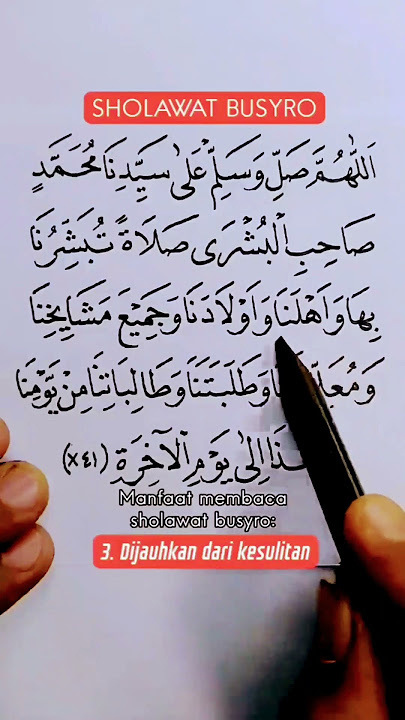 SHOLAWAT BUSYRO
اَللّٰهُمَّ صَلِّ وَسَلِّمْ عَلٰى سَيِّدِنَا مُحَمَّدٍ
صَاحِبِ الْبُشْرَى صَلَاةً تُبَشِّرُنَا
بِهَا وَاَهْلَنَا وَاَوْلَادَنَا وَجَمِيْعَ مَشَايِخِنَا
وَطَلَبَتَنَا وَطَالِبَاتِنَا مِنْ يَوْمِنَا
اِلٰى يَوْمِ الْآخِرَةِ (٤١×)
Manfaat membaca
sholawat busyro:
3. Dijauhkan dari kesulitan